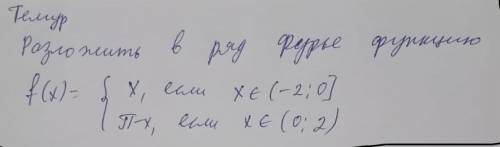 Темур
Разложить в ряд Фурье функцию
f(x) = { x, если x ∈ (-2; 0]
π-x, если x ∈ (0; 2)